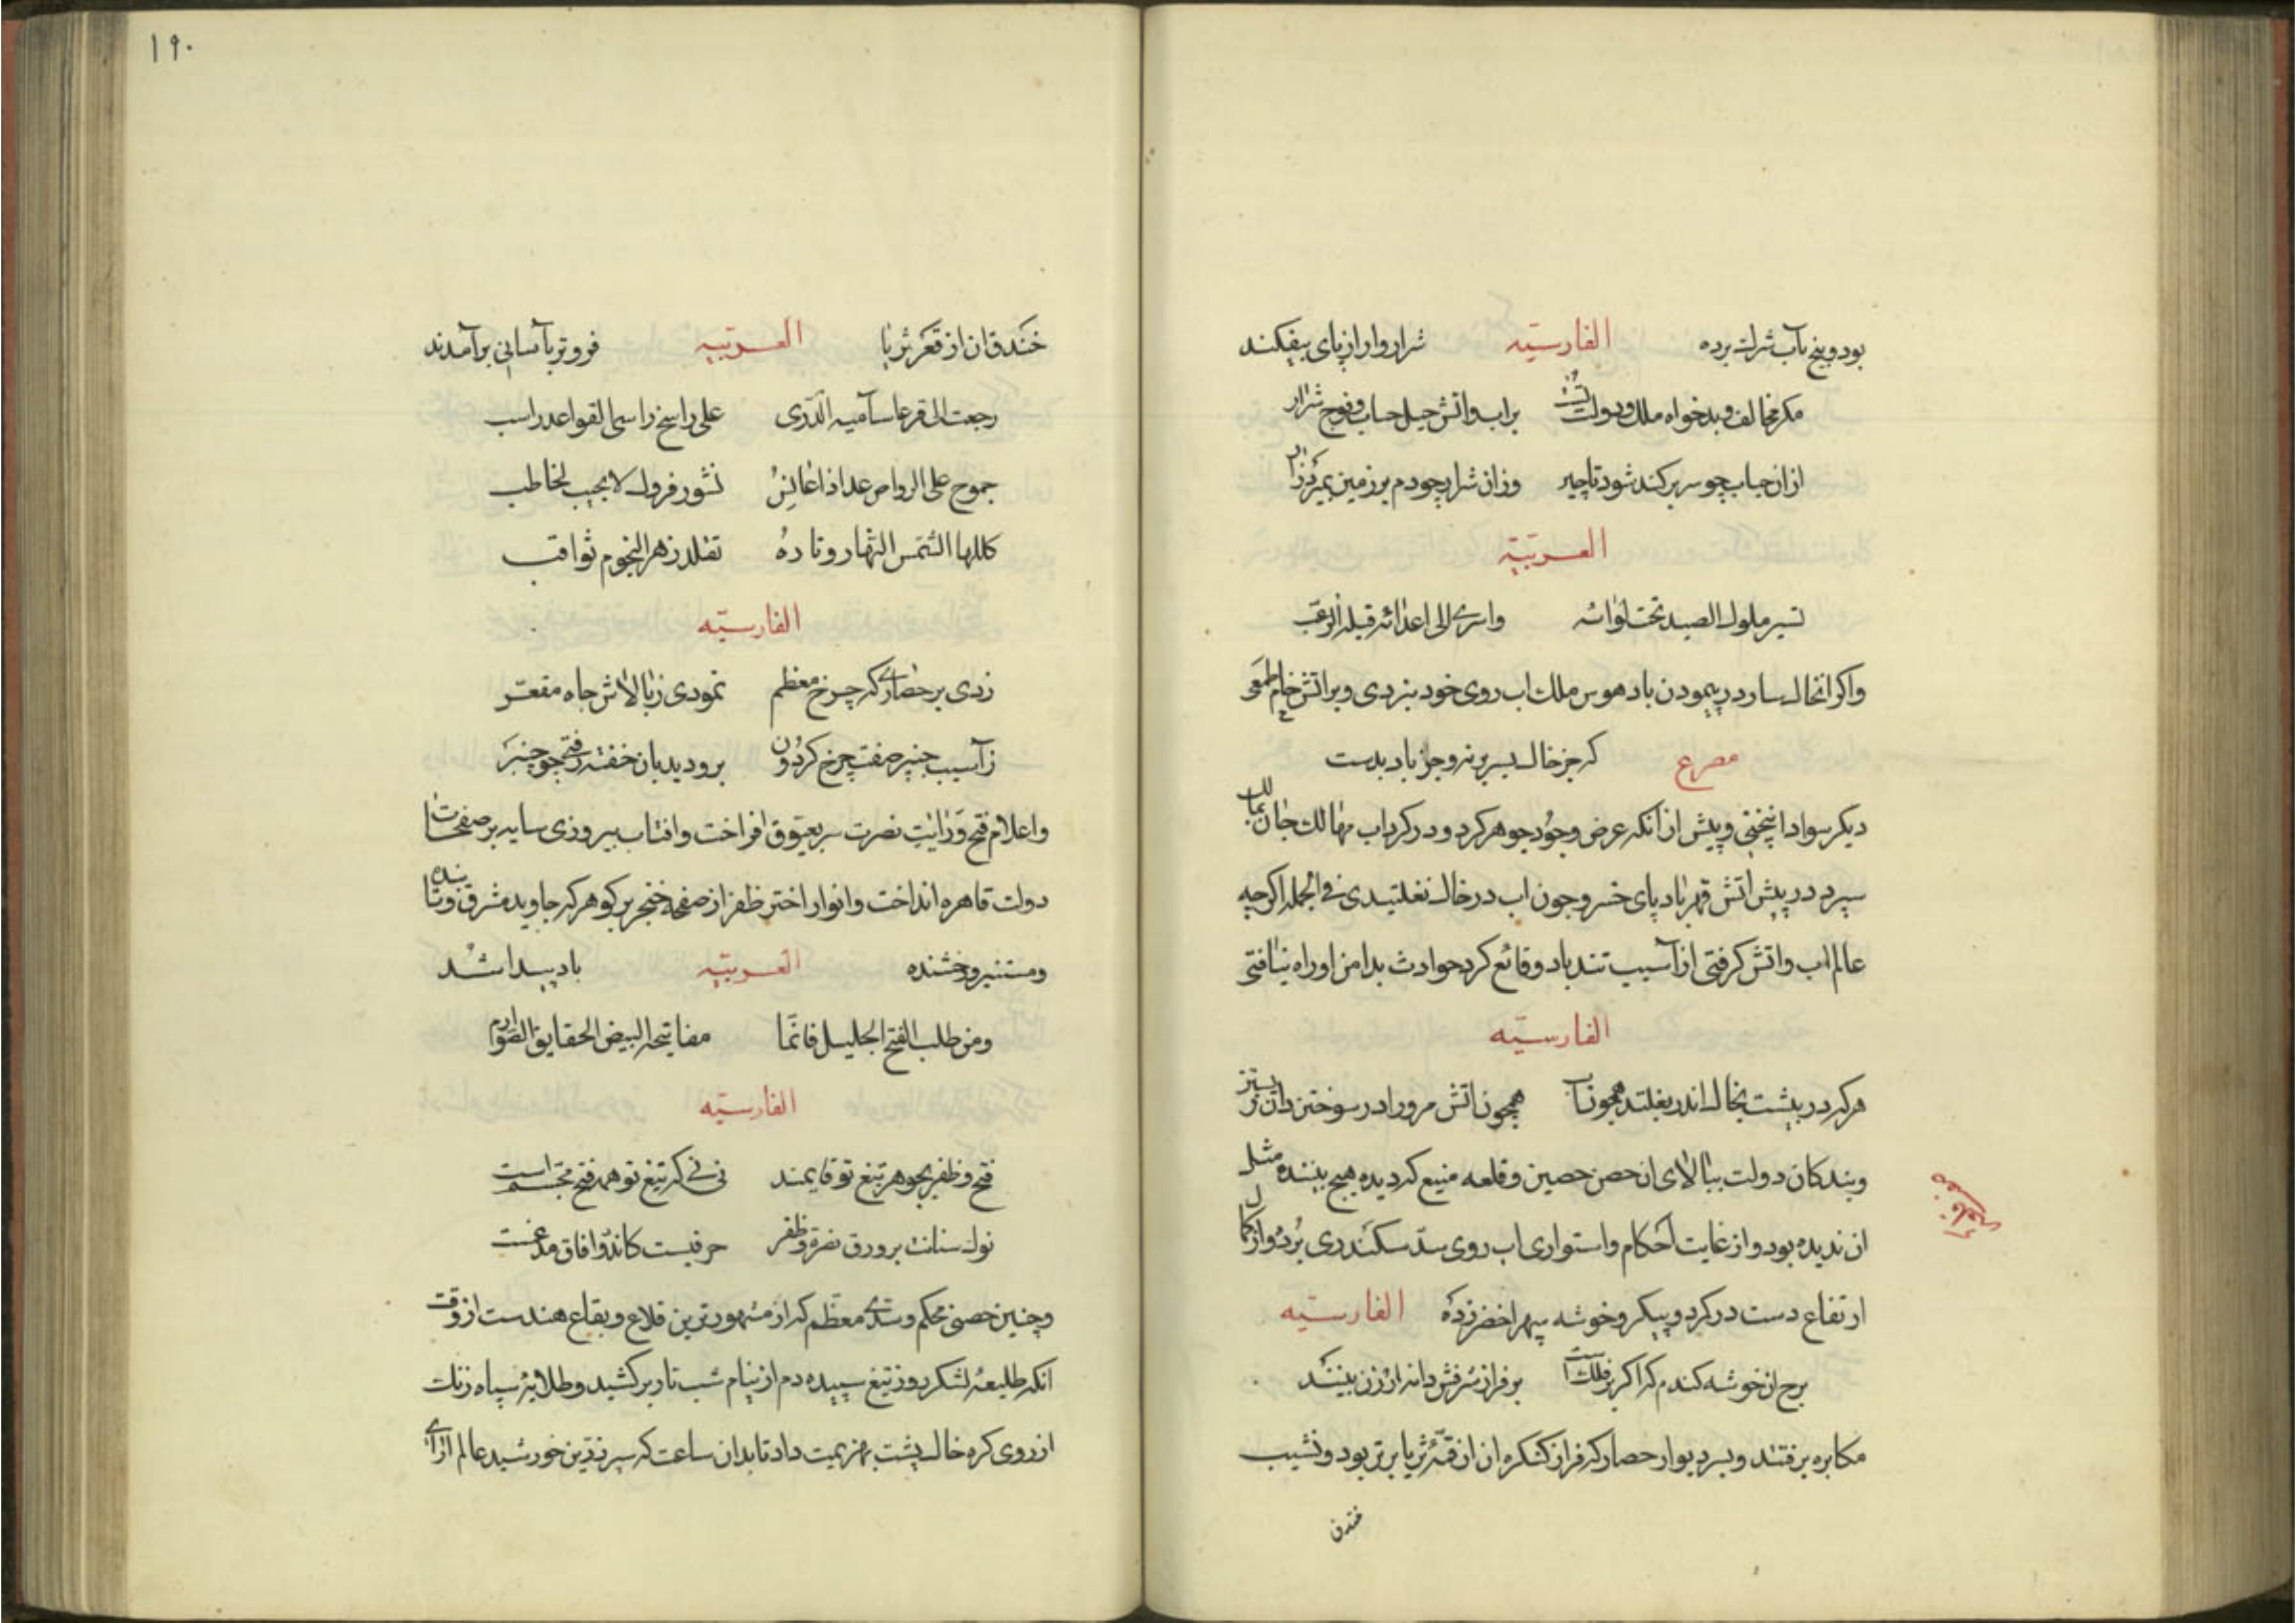 بود و بیخ بآب شرک برده الفارسیّه شرار وار از پای بیفکند
مکر مخالف و بدخواه ملک و دولت براب و آتش خیل حباب و فوج شرار
ازان حباب چو سر بر کند شود ناچیز وزان شرار چو دم بر زمین
العربیّة
تسیر ملوک الصید تحت لوائه واسری الی اعدائه قبله الرعب
واکر انخاکسار در پیمودن باد هوس ملک اب روی خود نبردی و بر آتش خام طمعی
مصرع که جز خاک بسر بر نه و جز باد بدست
دیکر سودا نپختی و پیش از آنکه عرض وجود جوهر کرد و در کرداب مهالک جان
سپرد در پیش آتش قهر باد پای خسرو چون اب در خاک نغلتیدی فی الجمله اکرچه
عالم اب و آتش کرفتی از آسیب تند باد وقائع کرد حوادث بدامن او راه نیافتی
الفارسیّه
هرکه در پیشت بخاک اندر بغلتد همچو آب همچون آتش مرورا در سوختن
و بندکان دولت ببالای ان حصن حصین و قلعه منیع که دیده هیچ بیننده مثل
ان ندیده بود و از غایت احکام و استواری اب روی سدّ سکندری برده و از کمال
ارتفاع دست در کرد و پیکر و خوشه سپهر اخضر زده الفارسیّه
برج ان خوشه کندم که اکر بر فلک است بر فراز شرفش دانه ارزن بینند
مکابره برفتند و بسر دیوار حصار که فراز کنکره ان از قمّه ثریا برتر بود و نشیب
خندق
۱۹۰
خندق ان از قعر ثری با العربیّه فروتر بآسانی برآمدند
رجعت الی قرعا سآمیه الذری علی راسخ راسی القواعد راسب
جموح علی الرواض عدا اذا نشور فروک لا یجیب لخاطب
کللها الشمس النهار وتارة تقلد زهر النجوم ثواقب
الفارسیّه
زدی بر حصاری که چرخ معظم نمودی ز بالاش چاه مقعّر
زآسیب چنبر صفت چرخ کردون برو دیدبان خفته رفتی چو چنبر
و اعلام فتح و رایت نصرت سر بعیّوق افراخت و افتاب پیروزی سایه بر صفحات
دولت قاهره انداخت و انوار اختر ظفر از صفحه خنجر پر کوهر که جاوید مشرق و تابنده
و مستنیر و رخشنده العربیّه باد پیدا شد
ومن طلب الفتح الجلیل فانّما مفاتیحه البیض الحقایق الصّوارم
الفارسیّه
فتح و ظفر بجوهر تیغ تو قایمند نی نی که تیغ تو همه فتح مجسّم است
نوک سنانت بر ورق نصرة و ظفر حرفیست کاندر و افاق مدغمست
و چنین حصنی محکم و سدّی معظّم که از مشهورترین قلاع و بقاع هندست از وقت
انکه طلیعهٔ لشکر روز تیغ سپیده دم از نیام شب تار برکشید و طلایهٔ سپاه زنک
از روی کره خاک پشت بهزیمت داد تا بدان ساعت که سپر زرّین خورشید عالم ارای